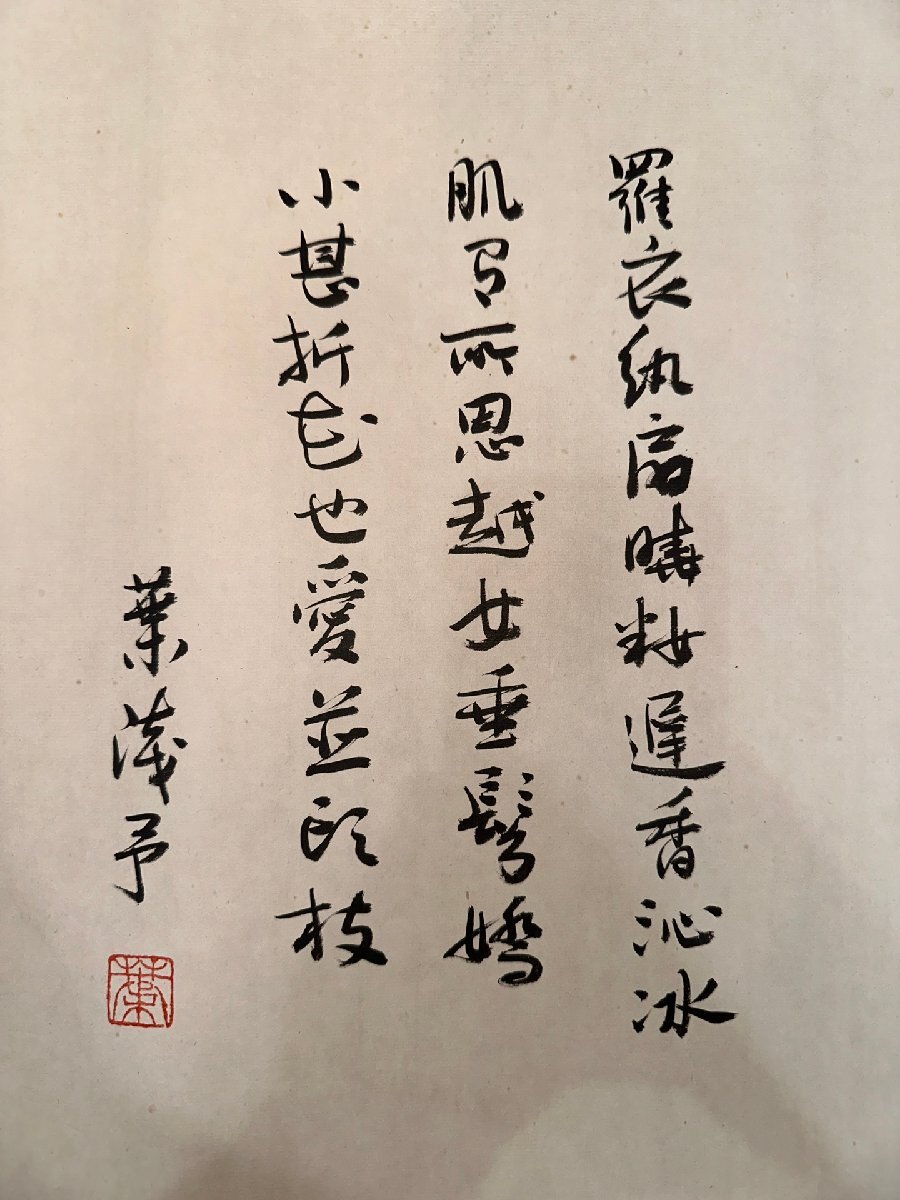 羅衣紈扇曉粧遲香沁冰
肌有所思越女垂髫嬌
小甚折花也愛並頭枝
葉淺予
葉